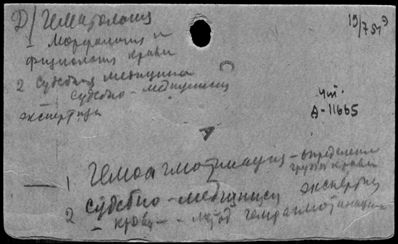 Д/ Гематология
1 Морфология и
физиология крови
2 Судебная медицина
судебно-медицинск
экспертиза
19/7 519
Чт.
А-11665
А
1 Гемоагглютинация - определения
группы крови
2 Судебно-медицинск экспертиз
- кровь - метод гемагглютинации